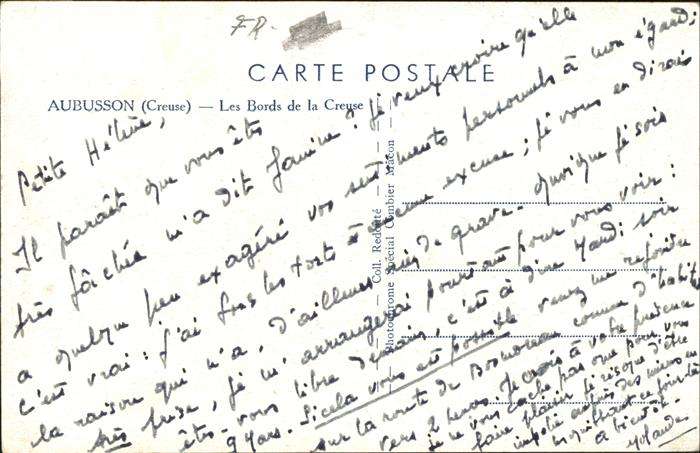 FR.
CARTE POSTALE
AUBUSSON (Creuse) — Les Bords de la Creuse
Coll. Redonté
Photochrome Spécial Combier Mâcon
Petite Hélène,
Il paraît que vous êtes
très fâchée m'a dit Janine. Je veux croire qu'elle
a quelque peu exagéré vos sentiments personnels à mon égard.
c'est vrai : j'ai tous les torts et aucune excuse ; je vous en dirais
la raison qui n'a, d'ailleurs, rien de grave. Quoique je sois
très prise, je m'arrangerai pourtant pour vous voir :
êtes-vous libre demain, c'est à dire Mardi soir
9 Mars. Si cela vous est possible venez me rejoindre
sur la route de comme d'habitude
vers 2 heures. Je crois à votre présence
je ne vous cache pas que pour vous
faire plaisir je risque d'être
auprès des miens
à bientôt.
Yolande